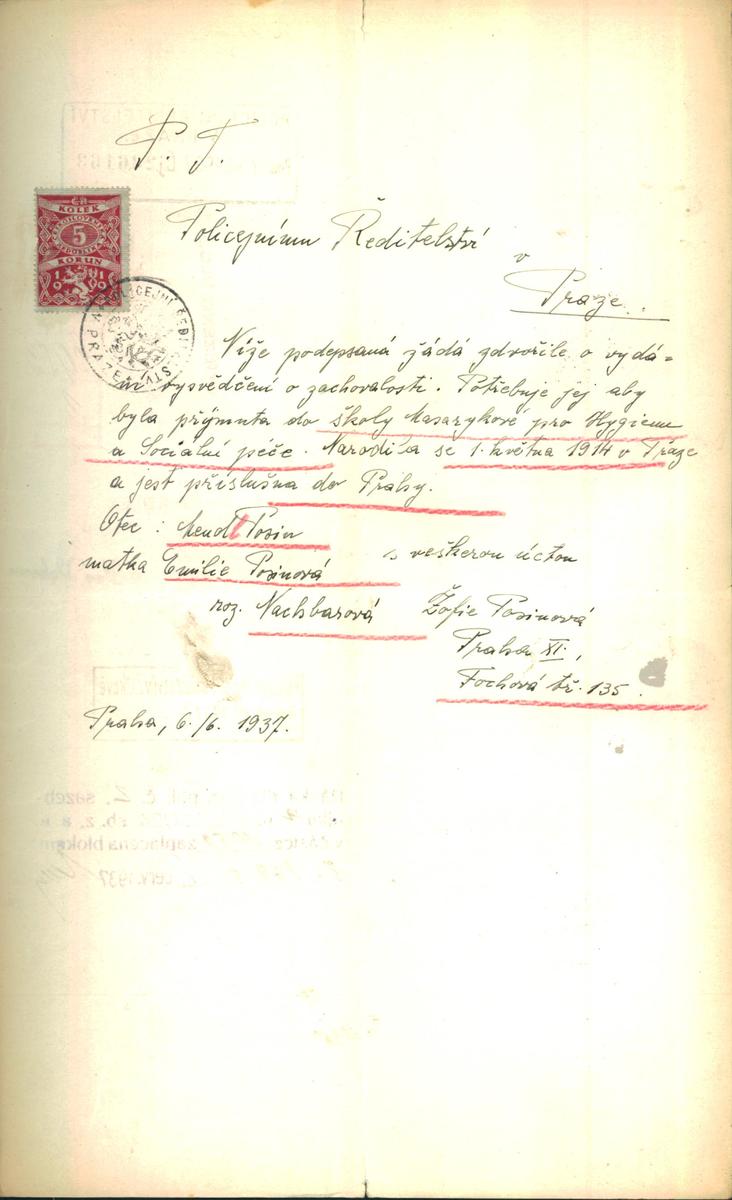 P. T.
KOLEK
5
KORUN
1919
Policejnímu Ředitelství
v
Praze.
POLICEJNÍ ŘEDITELSTVÍ V PRAZE
Níže podepsaná žádá zdvořile o vydá-
ní vysvědčení o zachovalosti. Potřebuje jej aby
byla přijmuta do školy Masarykové pro Hygienu
a Sociální péče. Narodila se 1. května 1914 v Praze
a jest příslušna do Prahy.
Otec: Mendl Posin
s veškerou úctou
matka Emilie Posinová
roz. Nachbarová
Žofie Posinová
Praha XI.,
Fochová tř. 135.
Praha, 6./6. 1937.